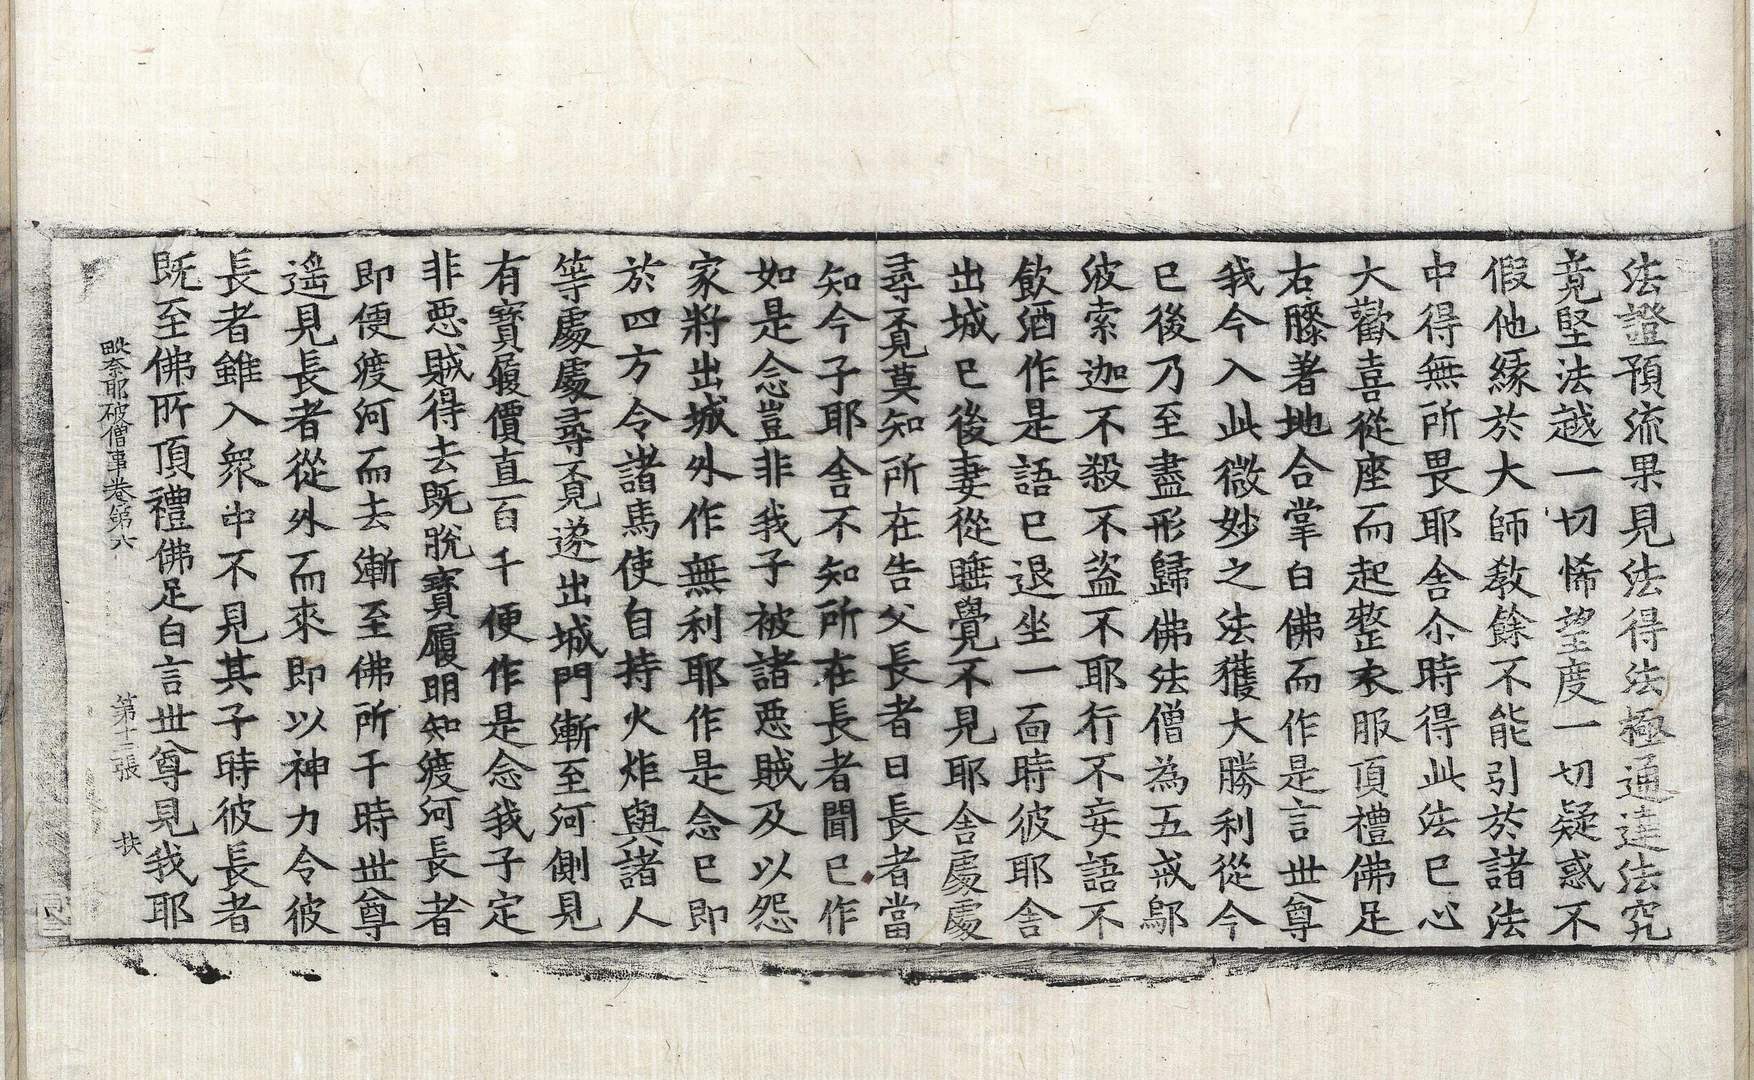 法證預流果見法得法極通達法究
竟堅法越一切悕望度一切疑惑不
假他緣於大師教餘不能引於諸法
中得無所畏耶舍尒時得此法已心
大歡喜從座而起整衣服頂禮佛足
右膝著地合掌白佛而作是言世尊
我今入此微妙之法獲大勝利從今
已後乃至盡形歸佛法僧為五戒鄔
波索迦不殺不盜不耶行不妄語不
飲酒作是語已退坐一面時彼耶舍
出城已後妻從睡覺不見耶舍處處
尋覔莫知所在告父長者曰長者當
知今子耶舍不知所在長者聞已作
如是念豈非我子被諸惡賊及以怨
家將出城外作無利耶作是念已即
於四方令諸馬使自持火炬與諸人
等處處尋覔遂出城門漸至河側見
有寶履價直百千便作是念我子定
非惡賊得去既脫寶履明知渡河長者
即便渡河而去漸至佛所于時世尊
遥見長者從外而來即以神力令彼
長者雖入衆中不見其子時彼長者
既至佛所頂禮佛足白言世尊見我耶
毗奈耶破僧事卷第六 第十二張 扶